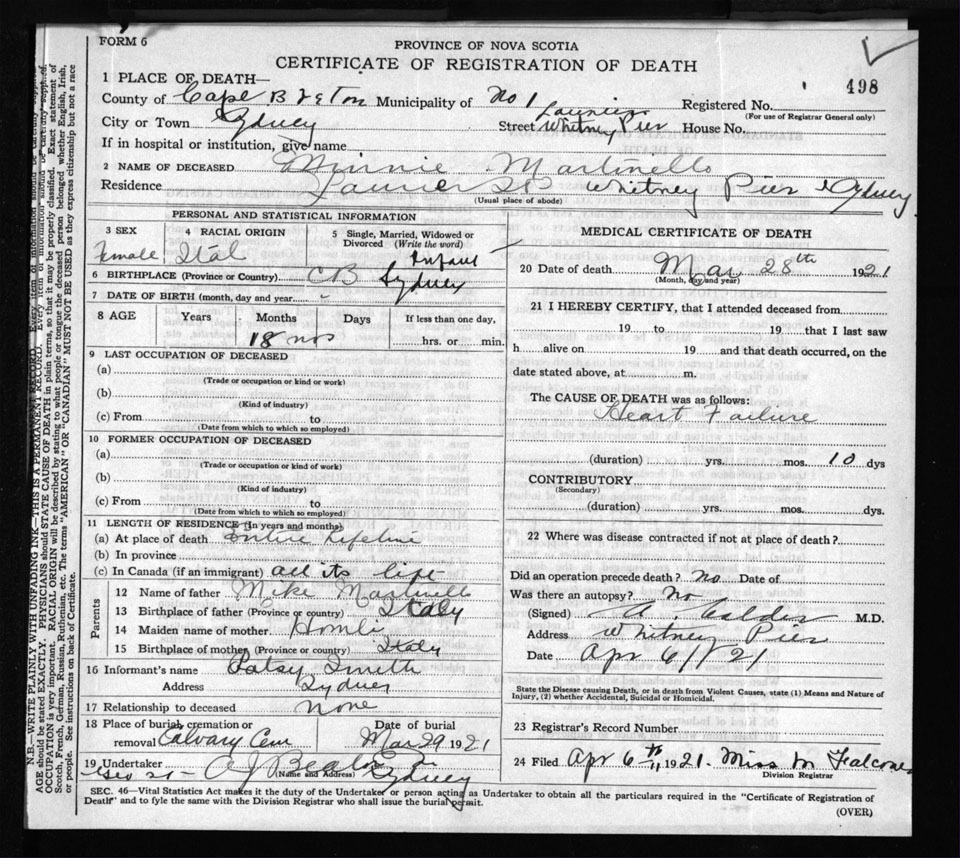 FORM 6
PROVINCE OF NOVA SCOTIA
CERTIFICATE OF REGISTRATION OF DEATH
498
1 PLACE OF DEATH—
County of Cape Breton Municipality of No 1 Registered No.
(For use of Registrar General only)
City or Town Sydney Street Laurier Whitney Pier House No.
If in hospital or institution, give name
2 NAME OF DECEASED Minnie Martinello
Residence Laurier St Whitney Pier Sydney
(Usual place of abode)
PERSONAL AND STATISTICAL INFORMATION
3 SEX Female
4 RACIAL ORIGIN Ital
5 Single, Married, Widowed or Divorced (Write the word) Infant
6 BIRTHPLACE (Province or Country) CB Sydney
7 DATE OF BIRTH (month, day and year)
8 AGE Years Months Days If less than one day,
18 mos hrs. or min.
9 LAST OCCUPATION OF DECEASED
(a)
(Trade or occupation or kind or work)
(b)
(Kind of industry)
(c) From to
(Date from which to which so employed)
10 FORMER OCCUPATION OF DECEASED
(a)
(Trade or occupation or kind of work)
(b)
(Kind of industry)
(c) From to
(Date from which to which so employed)
11 LENGTH OF RESIDENCE (In years and months)
(a) At place of death Entire Lifetime
(b) In province
(c) In Canada (if an immigrant) all its life
Parents
12 Name of father Mike Martinello
13 Birthplace of father (Province or country) Italy
14 Maiden name of mother
15 Birthplace of mother (Province or country) Italy
16 Informant's name Patsy Smith
Address Sydney
17 Relationship to deceased none
18 Place of burial, cremation or removal Calvary Cem
Date of burial Mar 29 1921
19 Undertaker A J Beaton
(Name and Address) Geo St Sydney
MEDICAL CERTIFICATE OF DEATH
20 Date of death Mar 28th 1921
(Month, day and year)
21 I HEREBY CERTIFY, that I attended deceased from
19 to 19 that I last saw
h alive on 19 and that death occurred, on the
date stated above, at m.
The CAUSE OF DEATH was as follows:
Heart Failure
(duration) yrs. mos. 10 dys
CONTRIBUTORY
(Secondary)
(duration) yrs. mos. dys.
22 Where was disease contracted if not at place of death?
Did an operation precede death? No Date of
Was there an autopsy? No
(Signed) A. Calder M.D.
Address Whitney Pier
Date Apr 6/21
State the Disease causing Death, or in death from Violent Causes, state (1) Means and Nature of
Injury, (2) whether Accidental, Suicidal or Homicidal.
23 Registrar's Record Number
24 Filed Apr 6th 1921. Miss M Falconer
Division Registrar
SEC. 46—Vital Statistics Act makes it the duty of the Undertaker or person acting as Undertaker to obtain all the particulars required in the "Certificate of Registration of
Death" and to fyle the same with the Division Registrar who shall issue the burial permit.
(OVER)
N.B.—WRITE PLAINLY WITH UNFADING INK—THIS IS A PERMANENT RECORD. Every item of information should be carefully supplied.
AGE should be stated EXACTLY. PHYSICIANS should STATE CAUSE OF DEATH in plain terms, so that it may be properly classified. Exact statement of
OCCUPATION is very important. RACIAL ORIGIN will be described by stating to what people or tongue the deceased person belonged whether English, Irish,
Scotch, French, German, Russian, Ruthenian, etc. The terms "AMERICAN" OR "CANADIAN" MUST NOT BE USED as they express citizenship but not a race
or people. See instructions on back of Certificate.